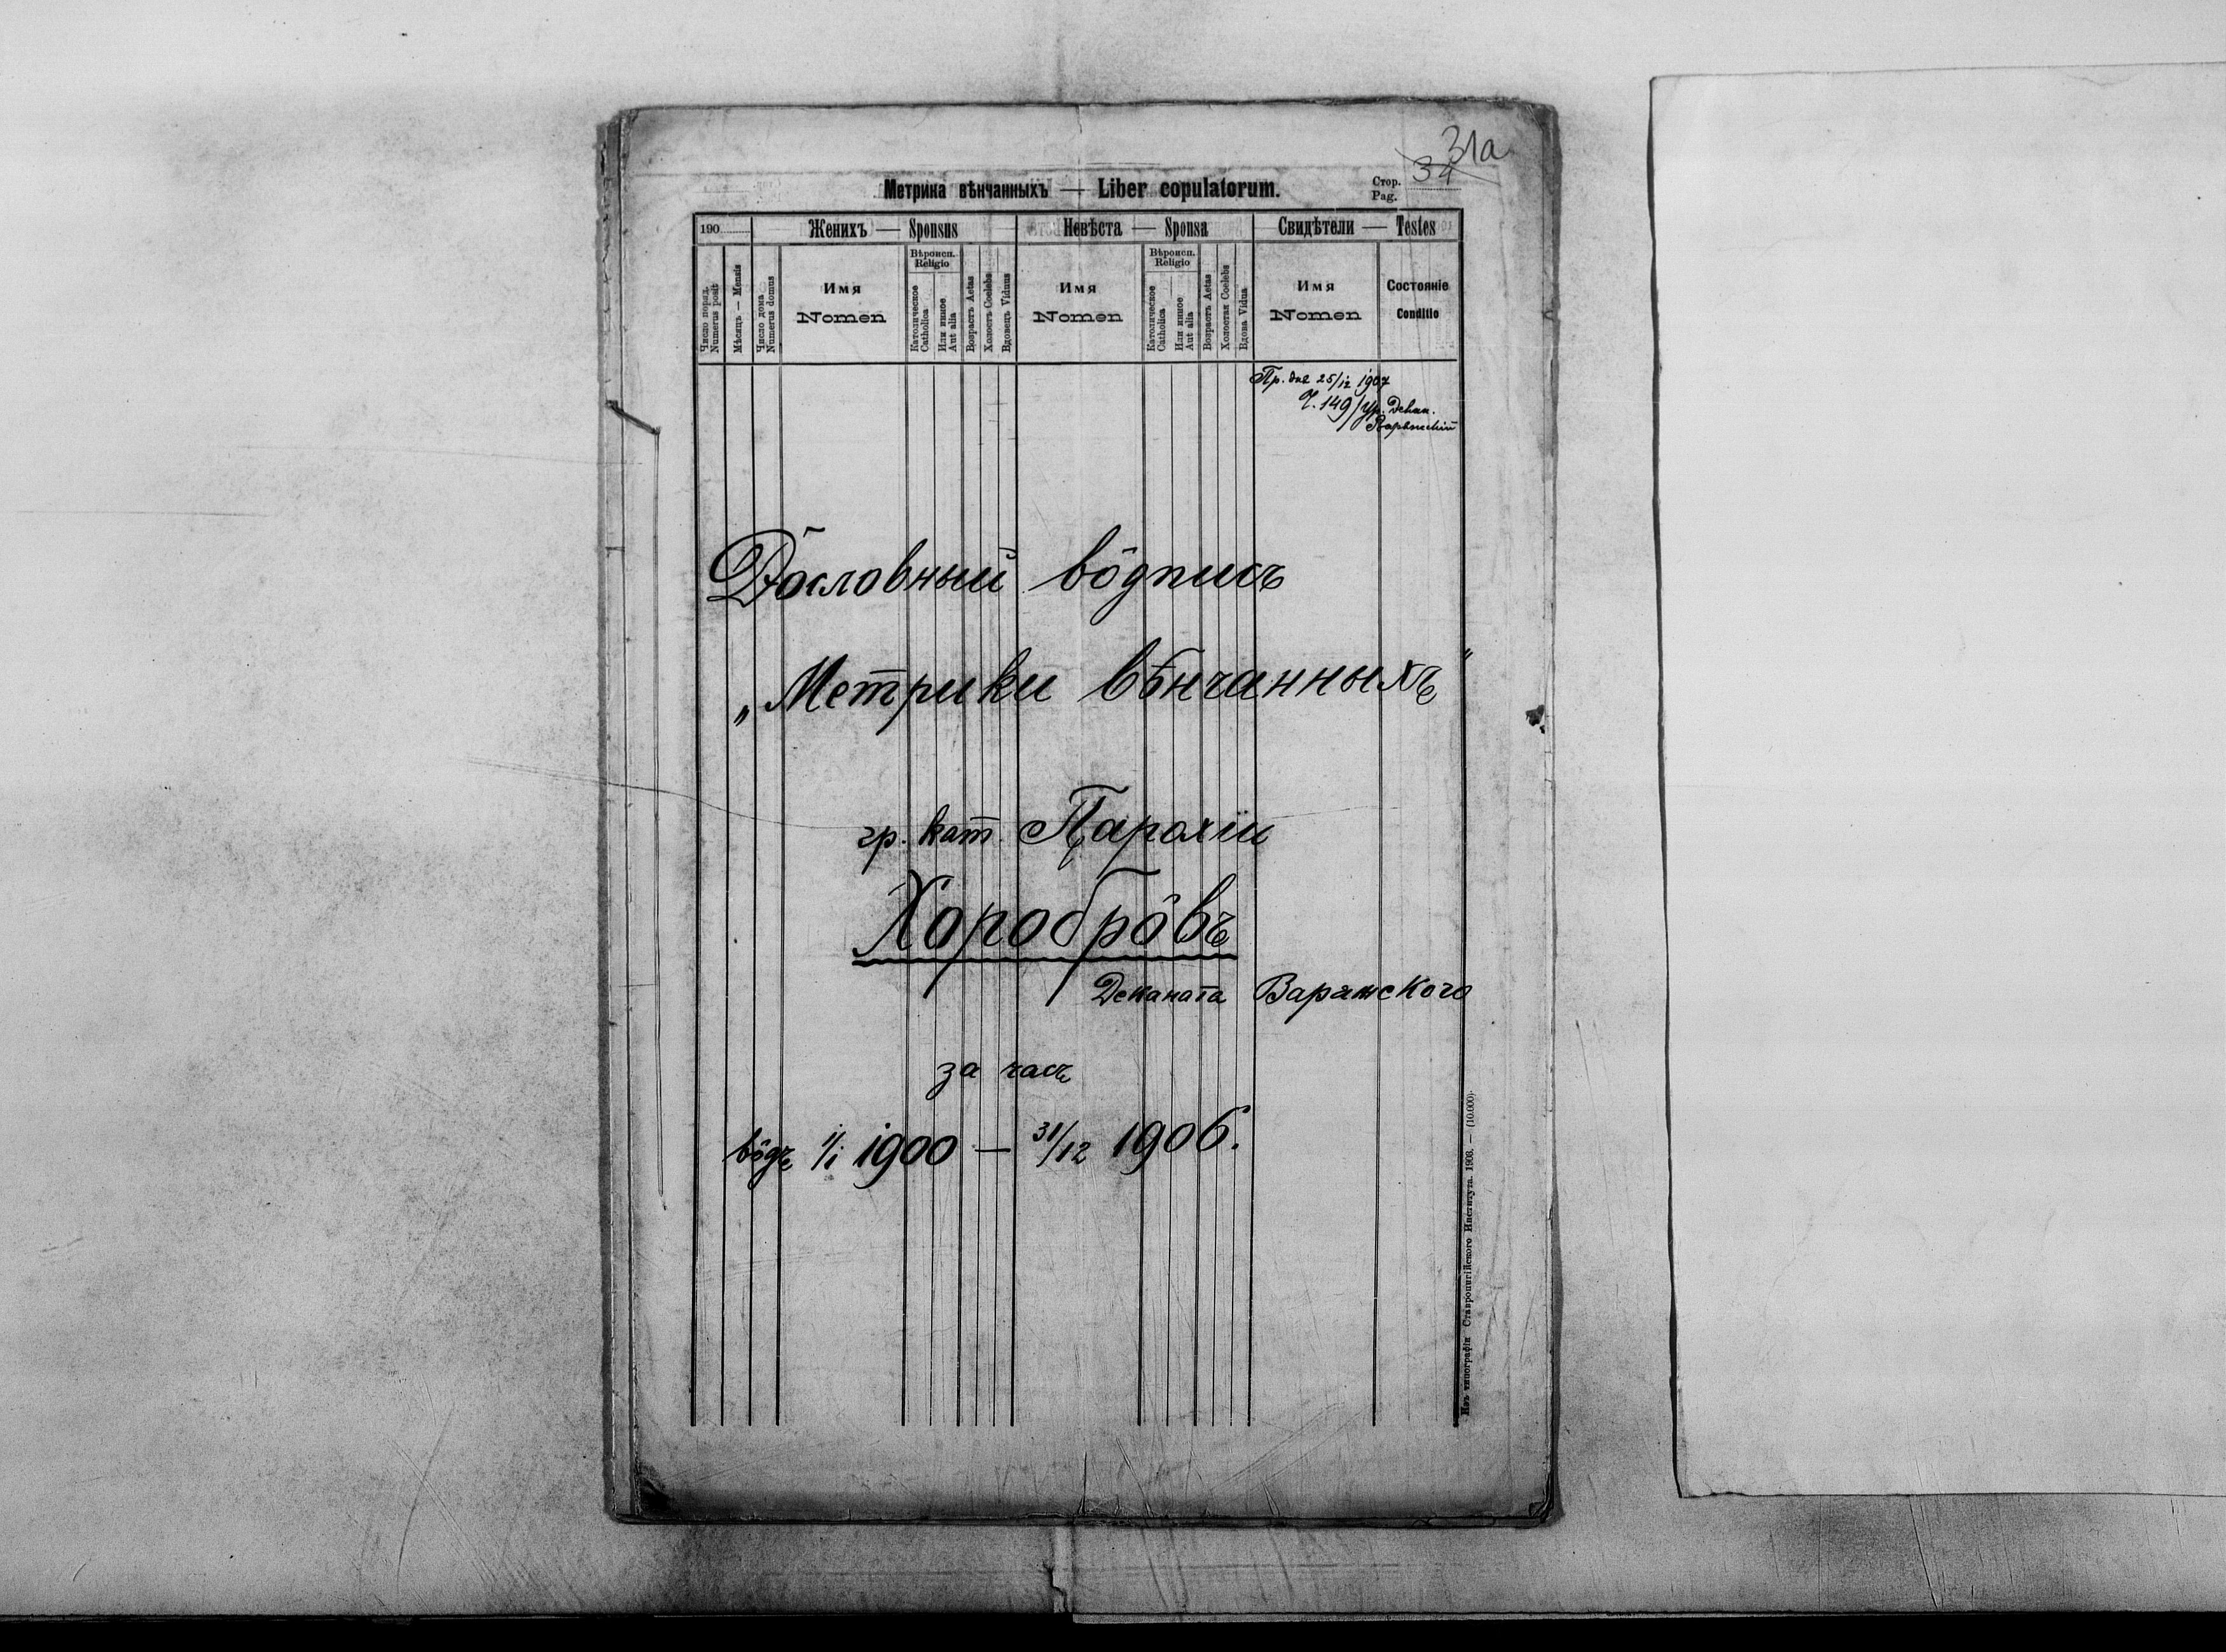 31а
34
Метрика вѣнчанныхъ — Liber copulatorum.
Стор.
Pag.
190
Женихъ — Sponsus
Невѣста — Sponsa
Свидѣтели — Testes
Число поряд.
Numerus posit
Мѣсяцъ — Mensis
Число дома
Numerus domus
Имя
Nomen
Вѣроисп.
Religio
Католическое
Catholica
Или инное
Aut alia
Возрастъ Aetas
Холостъ Coelebs
Вдовецъ Viduus
Имя
Nomen
Вѣроисп.
Religio
Католическое
Catholica
Или инное
Aut alia
Возрастъ Aetas
Холостая Coelebs
Вдова Vidua
Имя
Nomen
Состояніе
Conditio
Пр. дня 25/12 1907
Ч. 149/Ур. Декан.
Дословный вôдписъ
„Метрики вѣнчанныхъ"
гр. кат. Парохіи
Хоробрôвъ
Деканата Варяжского
за часъ
вôдъ 1/1 1900 — 31/12 1906.
Изъ типографіи Ставропигійского Института. 1903. — (10.000).